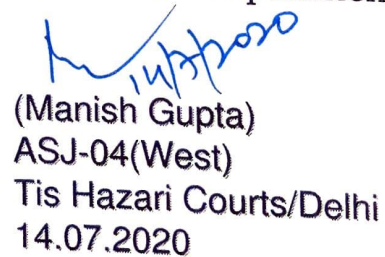 14/7/2020
(Manish Gupta)
ASJ-04(West)
Tis Hazari Courts/Delhi
14.07.2020